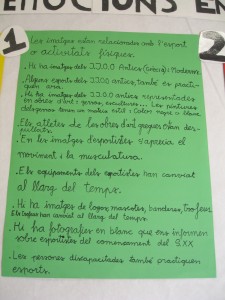 EMOCIONS EN
1
2
Les imatges estan relacionades amb l'esport
o activitats físiques.
. Hi ha imatges dels JJ.OO Antics (Grècia) i Moderns.
. Alguns esports dels JJ.OO antics, també es practi-
quen avui.
. Hi ha imatges dels JJ.OO antics representades
en obres d'art: gerros, escultures... Les pintures
dels gerros
. Els atletes de les obres d'art gregues estan des-
pullats.
. En les imatges d'esportistes s'aprecia el
moviment i la musculatura.
. Els equipaments dels esportistes han canviat
al llarg del temps.
. Hi ha imatges de logos, mascotes, banderes, trofeus.
Els trofeus han canviat al llarg del temps.
. Hi ha fotografies en blanc que ens informen
sobre esportistes del començament del S.XX
. Les persones discapacitades també practiquen
esports.